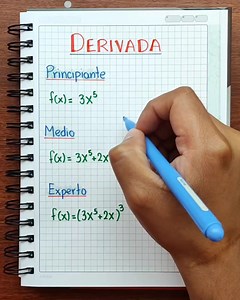 DERIVADA
Principiante
f(x) = 3x⁵
Medio
f(x) = 3x⁵+2x
Experto
f(x)=(3x⁵+2x)³